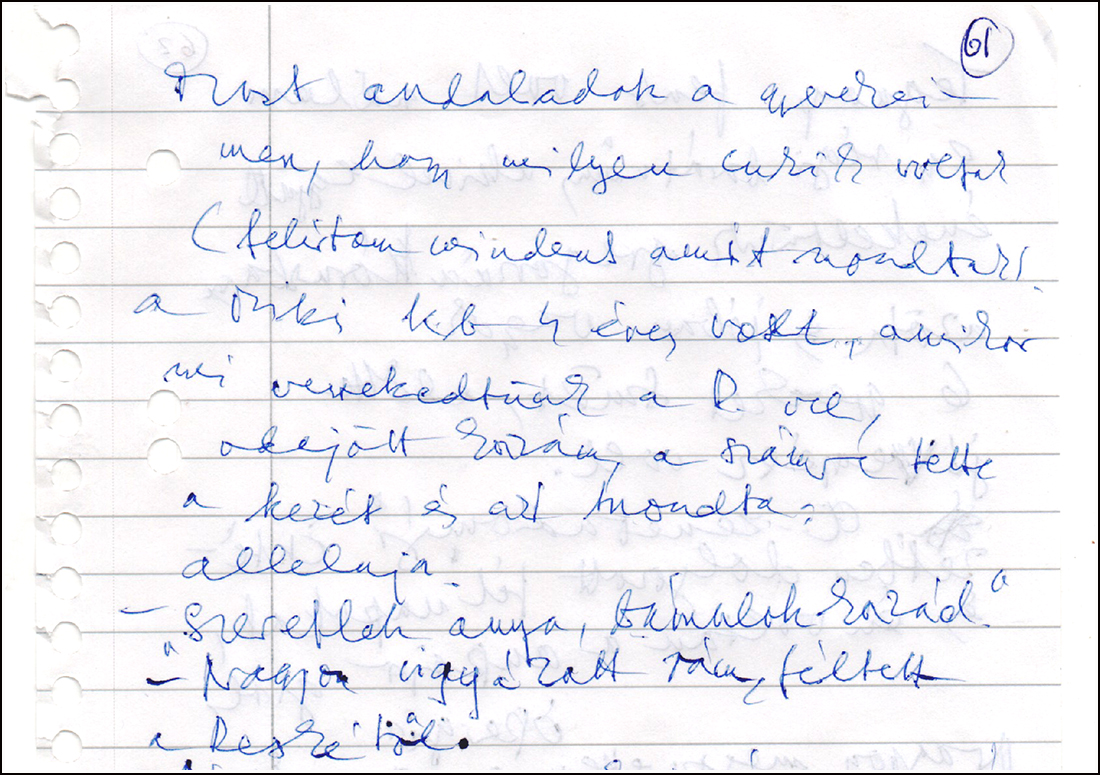 61
Most andaladok a gyerekei-
men, hogy milyen cukik voltak
(felírtam mindent amit mondtak)
a Niki kb 4 éves volt, amikor
mi verekedtünk a R. vel,
odajött hozzám, a számra tette
a kezét és azt mondta:
alleluja
- "szeretlek anya, bámulok hozzád"
- Nagyon vigyázott rám, féltett
a Reszkétől.